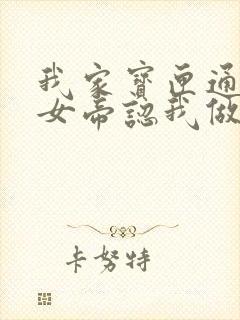 我家寶匣通
女帝認我做
卡努特